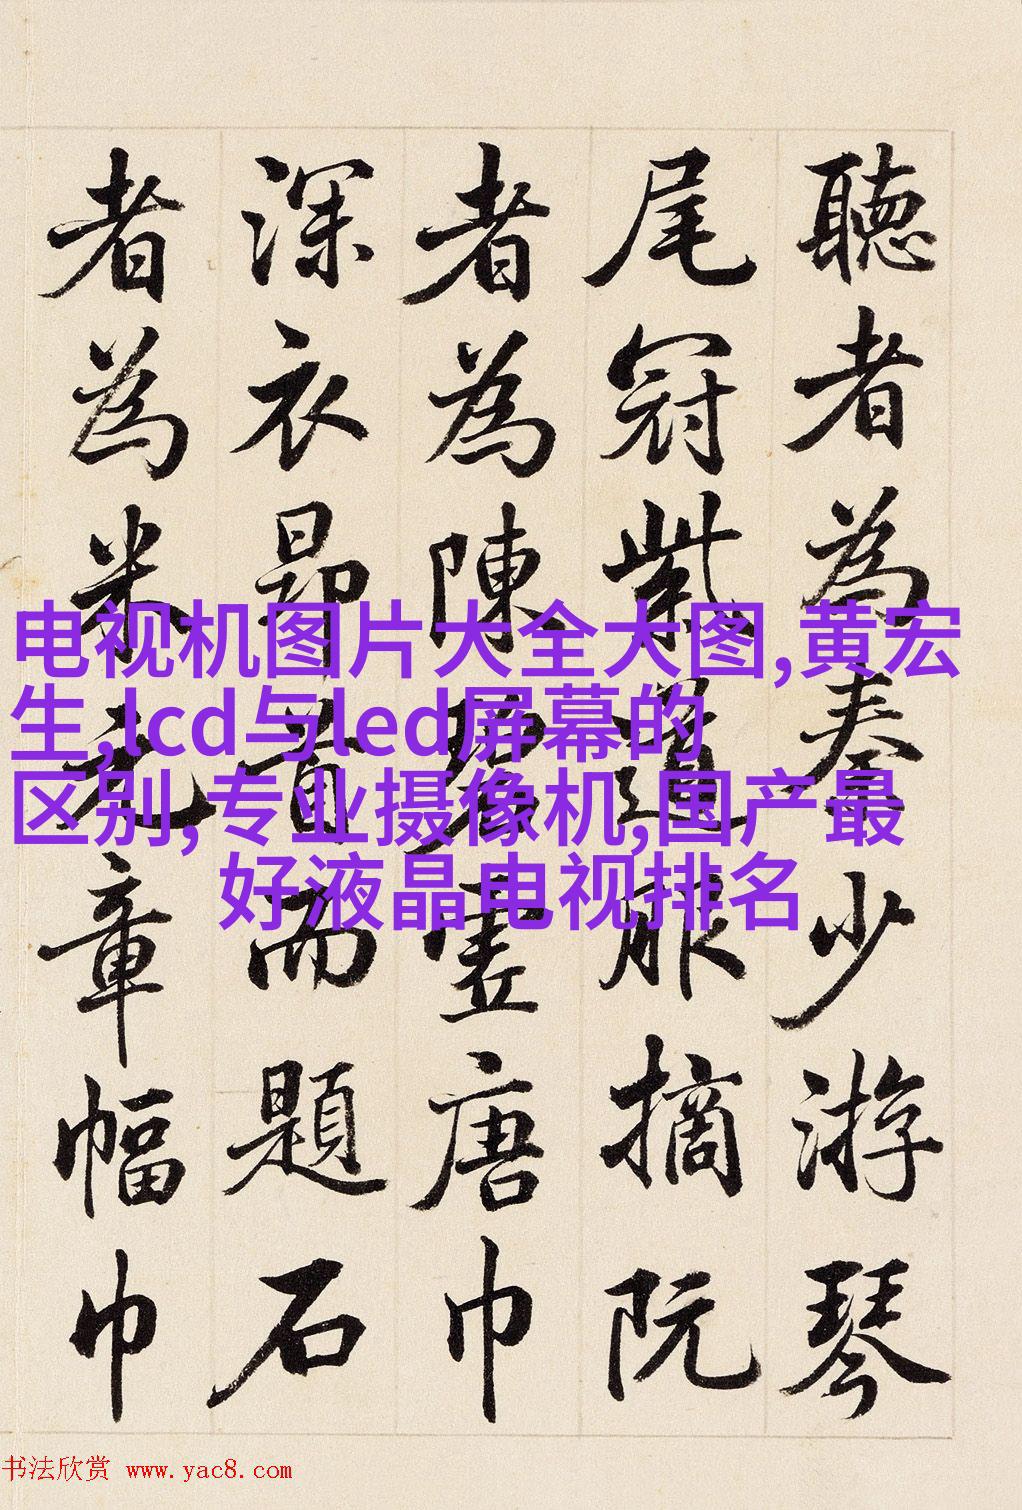 聽者為秦少游琴
尾冠紫道服摘阮
者為陳碧虛唐巾
深衣昂首而題石
者為米元章幅巾
电视机图片大全大图,黄宏
生,lcd与led屏幕的
区别,专业摄像机,国产最
好液晶电视排名
书法欣赏 www.yac8.com